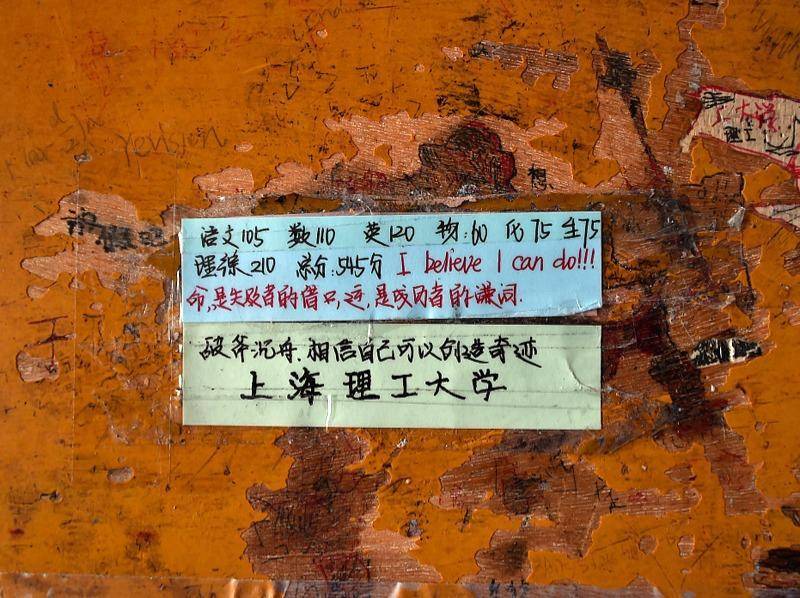 想
大学
理工
语文105 数110 英120 物:60 化75 生75
理综210 总分:545分 I believe I can do!!!
命,是失败者的借口,运,是成功者的谦词.
破斧沉舟.相信自己可以创造奇迹
上海理工大学